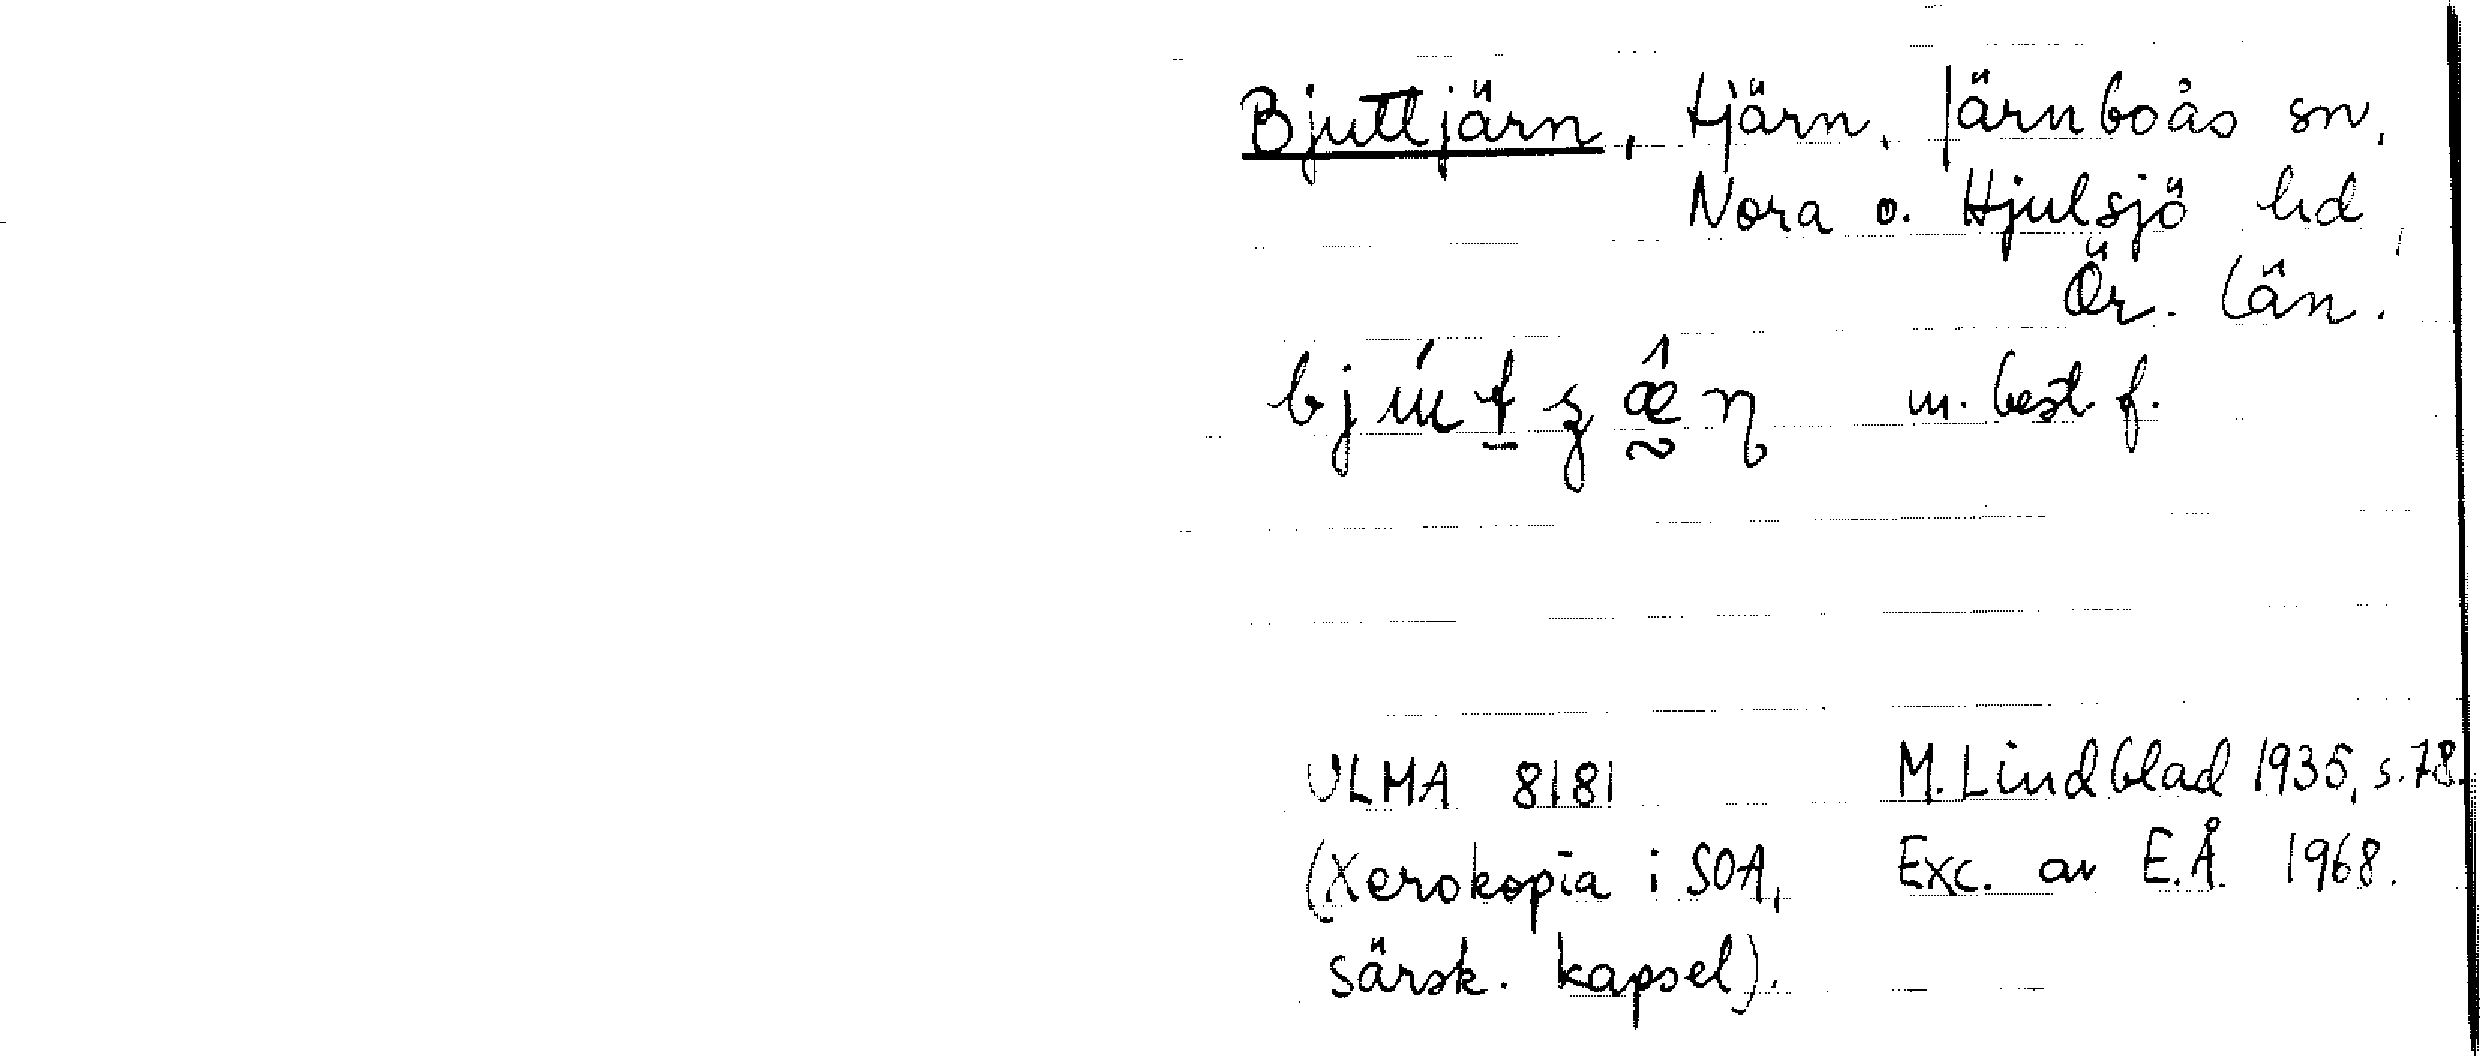 Bjuttjärn, tjärn, Järnboås sn,
Nora o. Hjulsjö hd,
Ör. län.
m. best. f.
ULMA 8181 M. Lindblad 1935, s. 78.
(Xerokopia i SOA, Exc. av E.Å. 1968.
särsk. kapsel).